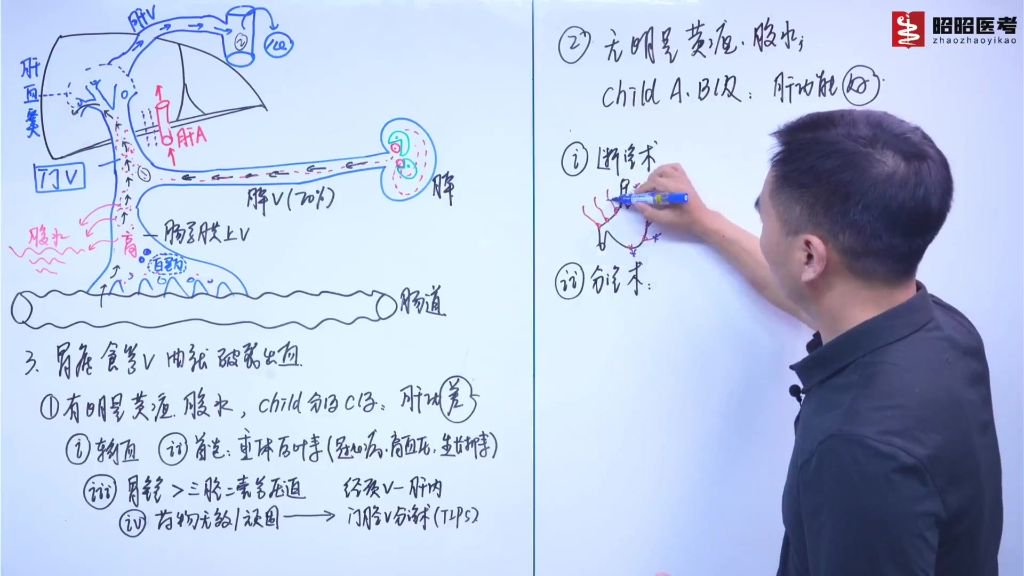 肝V
肝血窦
肝A
门V
脾V(70%)
脾
腹水
肠系膜上V
毒
肠道
3. 胃底食管V曲张破裂出血
① 有明显黄疸.腹水, child分级C级: 肝功差
i 输血 ii 首选: 垂体后叶素(冠心病.高血压.
iii 生长抑素>三腔二囊管压迫 经颈V-肝内
iv 药物无效/顽固 → 门腔V分流术(TIPS)
② 无明显黄疸.腹水;
child A.B级: 肝功能好
i 断流术
ii 分流术:
昭昭医考
zhaozhaoyikao